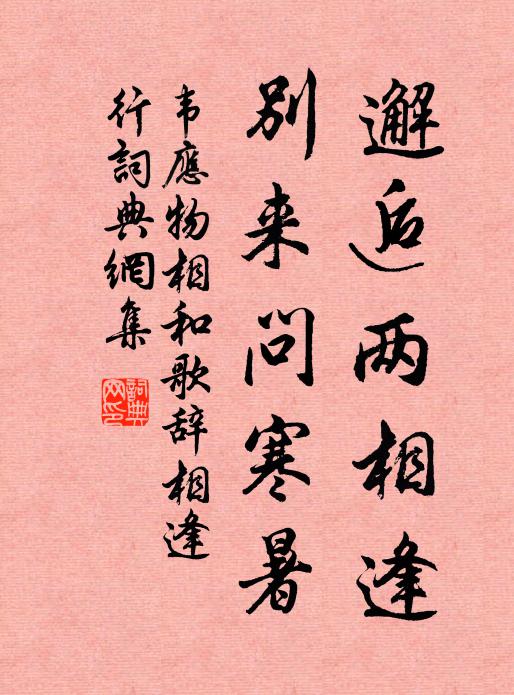 邂逅两相逢
别来问寒暑
韦應物相和歌辞相逢
行詞典網集
詞典网印